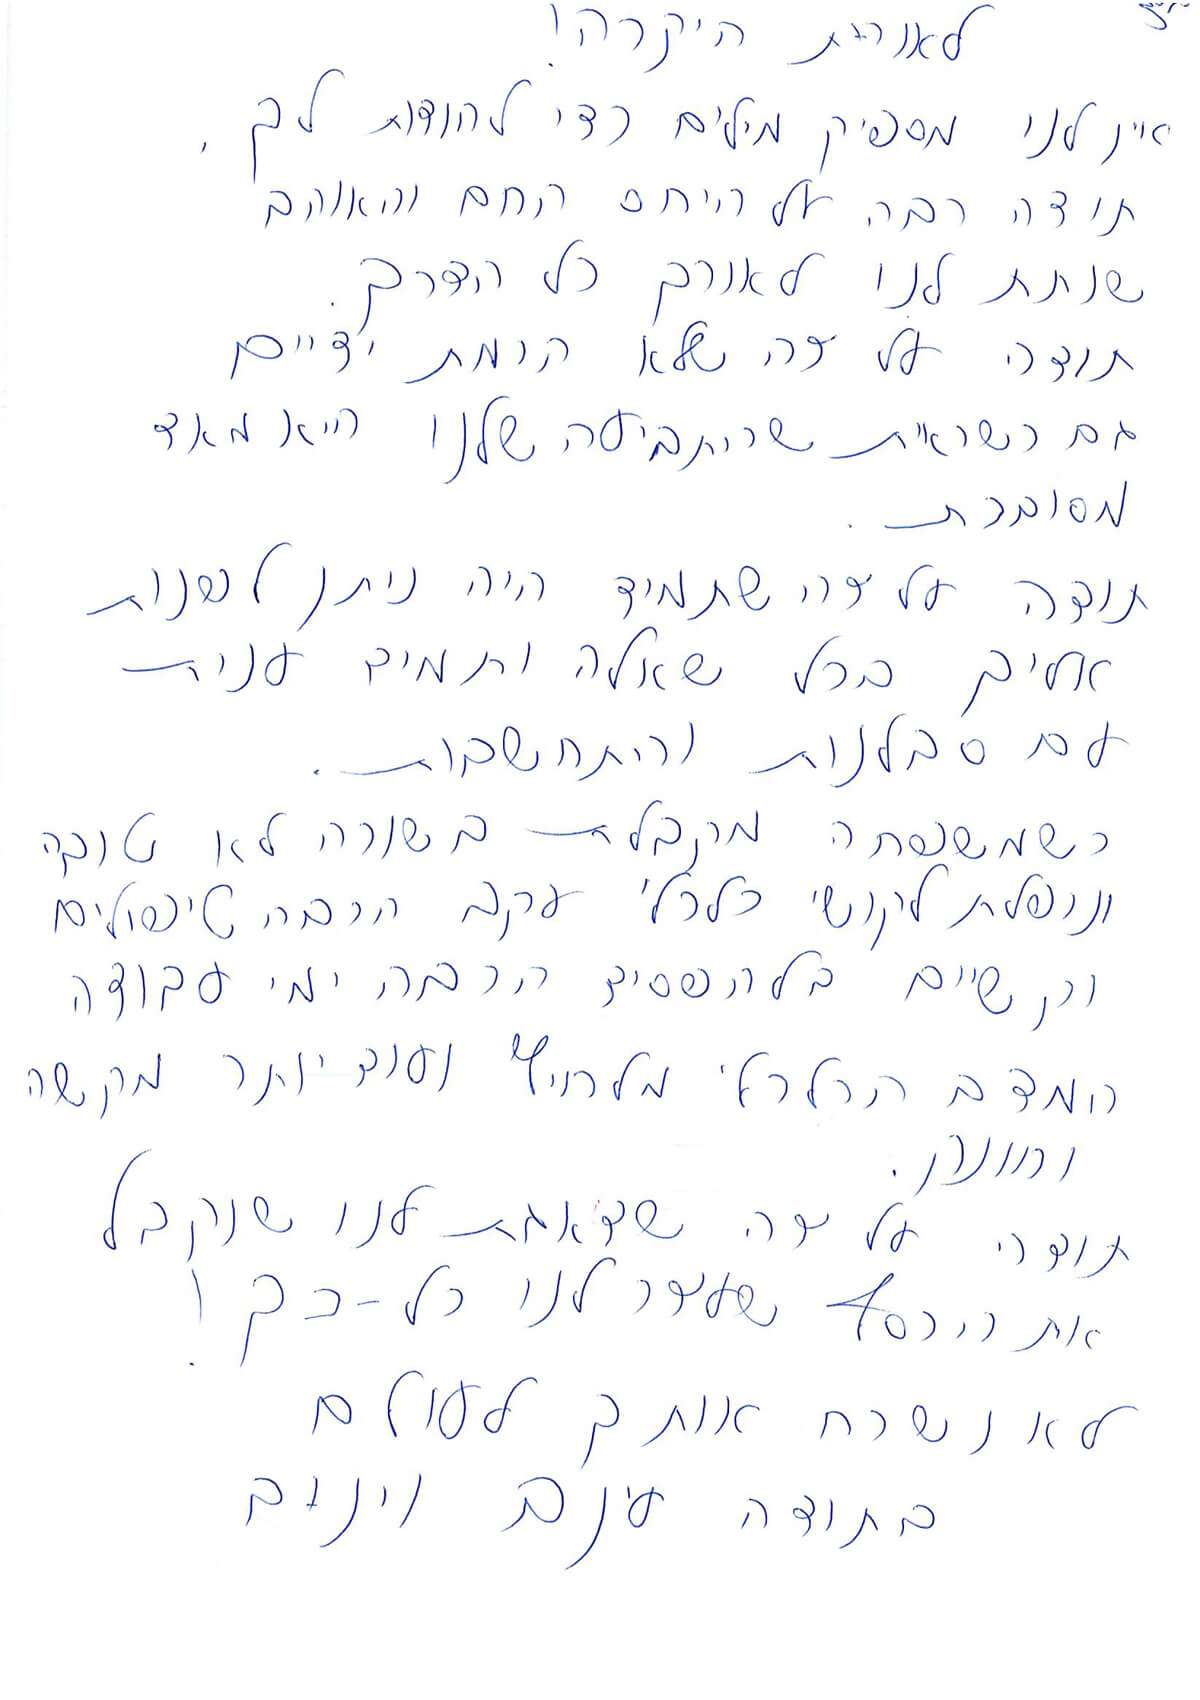 לאורית היקרה!
אין לנו מספיק מילים כדי להודות לך,
תודה רבה על היחס החם והאוהב
שנתת לנו לאורך כל הדרך.
תודה על זה שלא הרמת ידיים
גם כשראית שהתביעה שלנו היא מאד
מסובכת.
תודה על זה שתמיד היה ניתן לפנות
אליך בכל שאלה ותמיד ענית
עם סבלנות והתחשבות.
כשמשפחה מקבלת בשורה לא טובה
ונופלת לקושי כלכלי עקב הרבה טיפולים
וקשיים בלהפסיד הרבה ימי עבודה
המצב הכלכלי מלחיץ ועוד יותר מקשה
וחונק.
תודה על זה שדאגת לנו שנקבל
את הכסף שעזר לנו כל-כך!
לא נשכח אותך לעולם
בתודה עינב וינוב